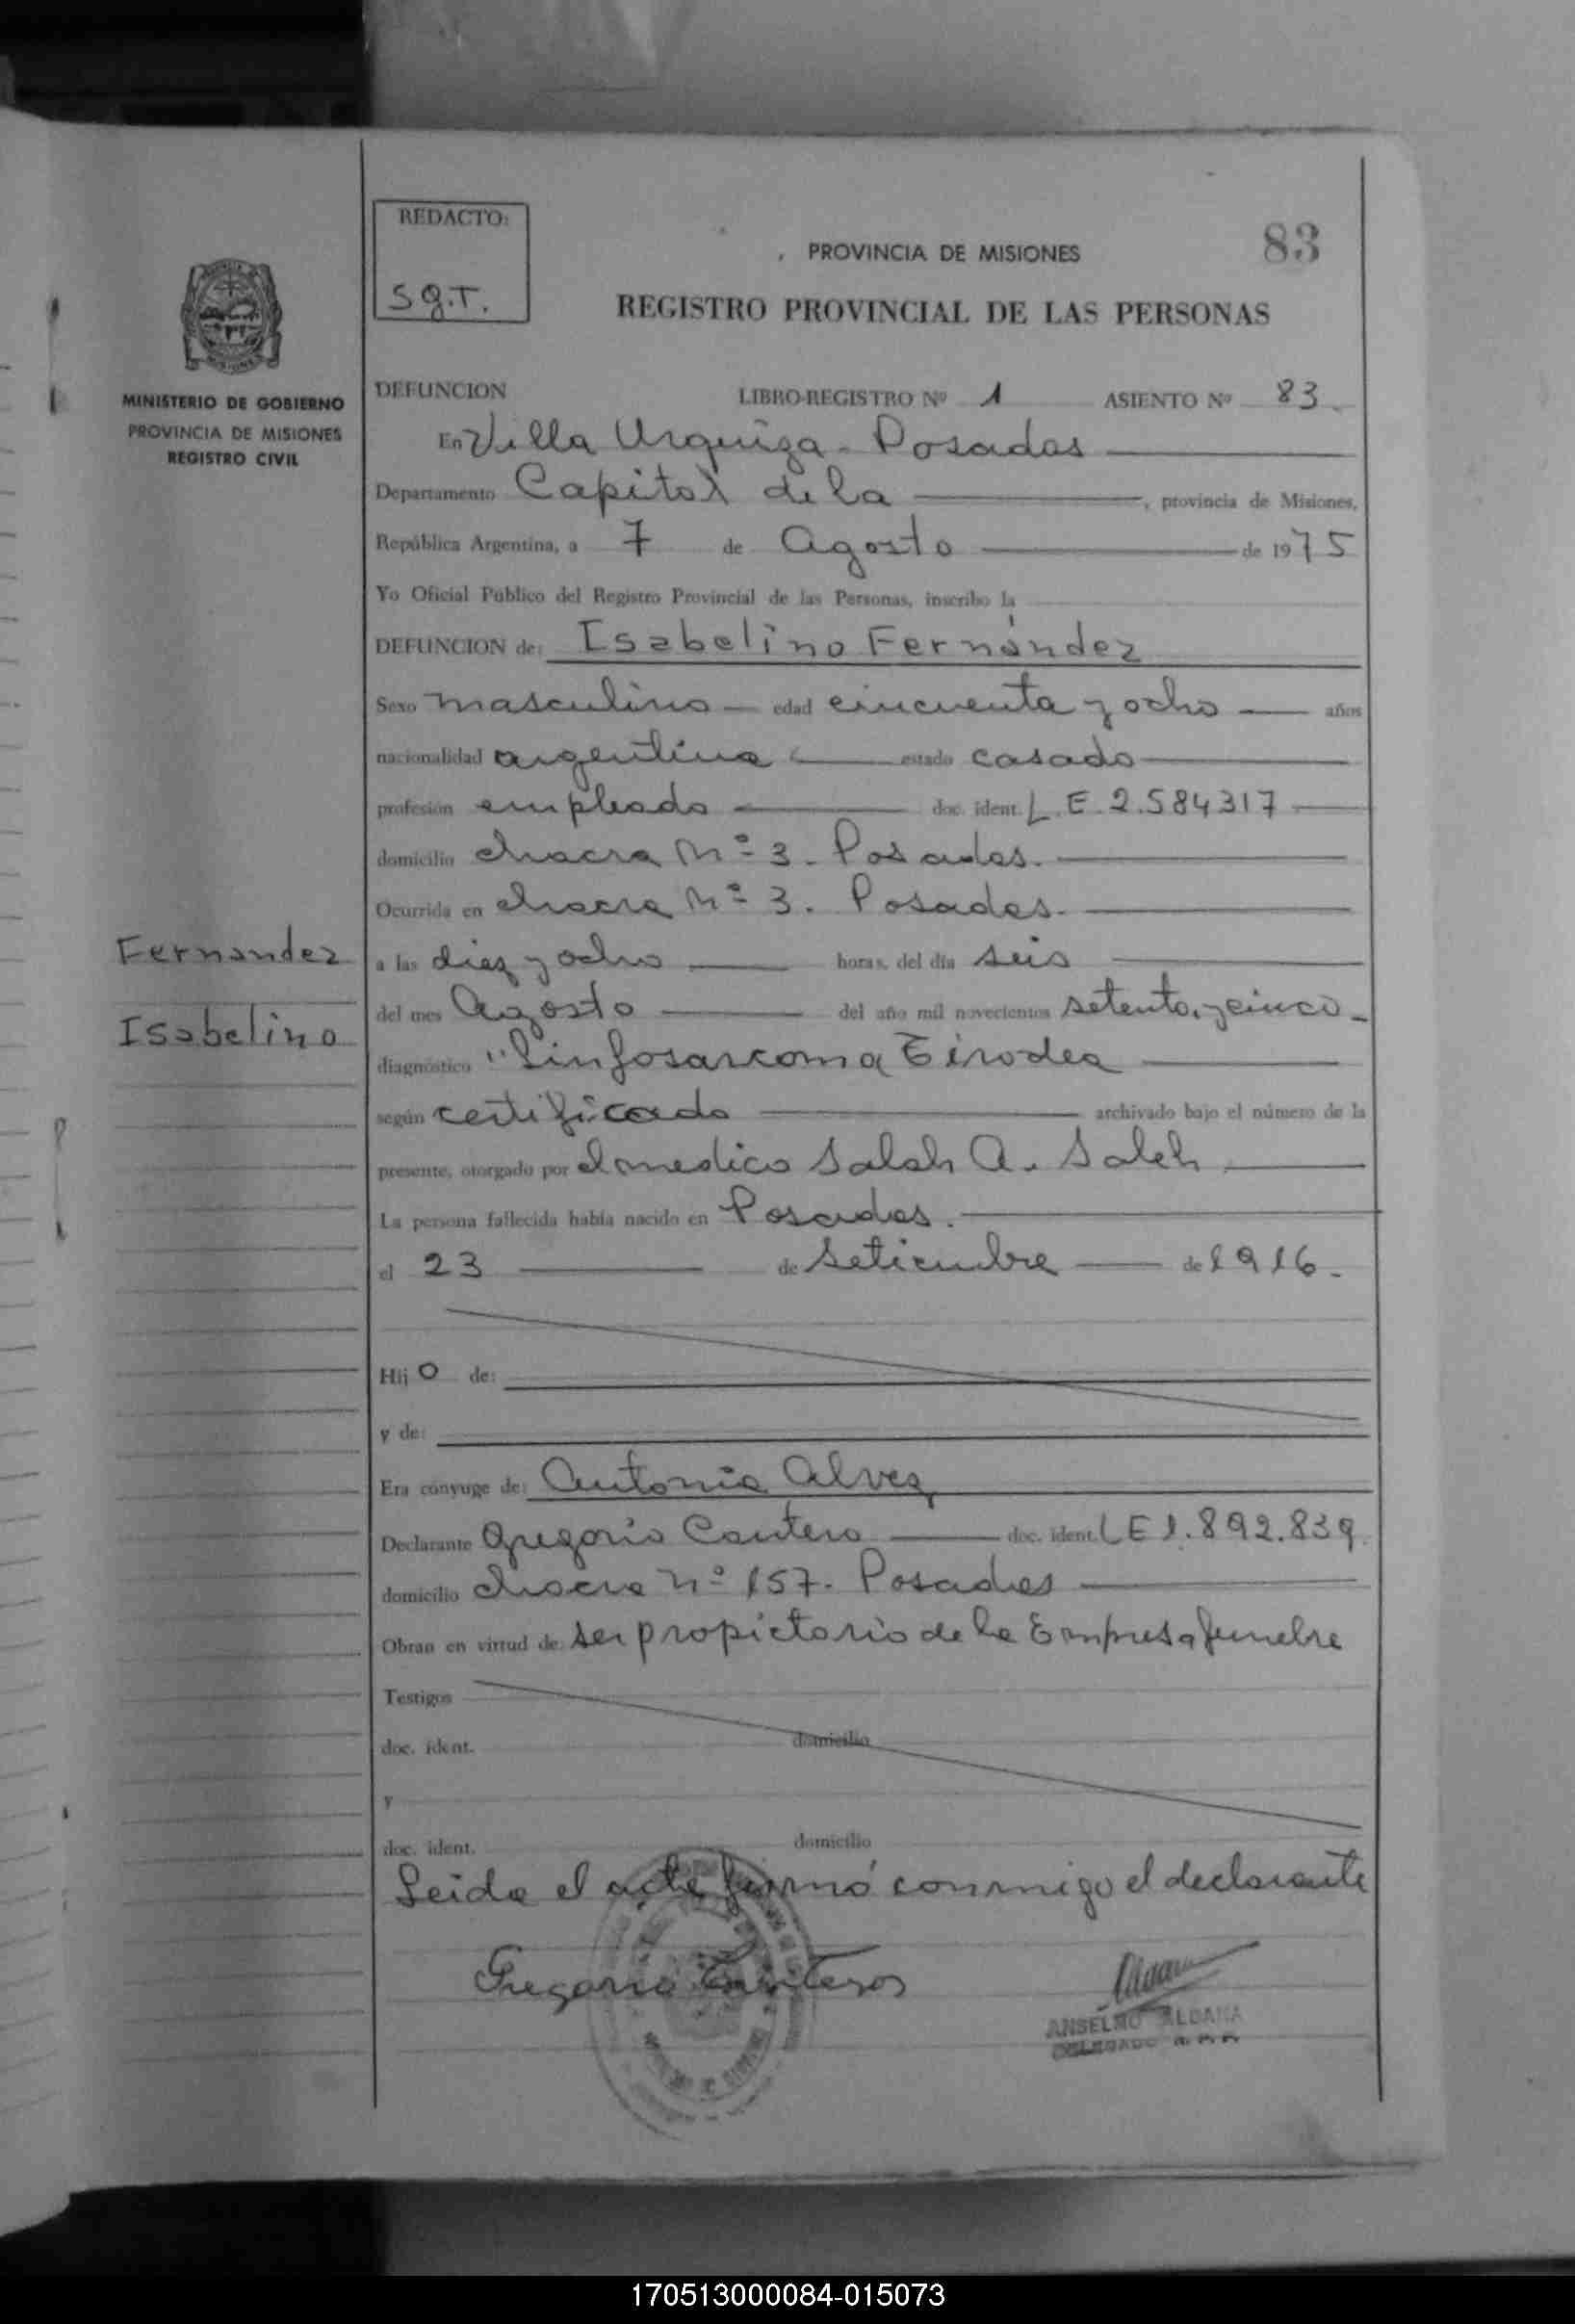 REDACTO:
S g.T.
PROVINCIA DE MISIONES
83
REGISTRO PROVINCIAL DE LAS PERSONAS
MINISTERIO DE GOBIERNO
PROVINCIA DE MISIONES
REGISTRO CIVIL
DEFUNCION LIBRO-REGISTRO Nº 1 ASIENTO Nº 83.
En Villa Urquiza - Posadas
Departamento Capital de la , provincia de Misiones,
República Argentina, a 7 de Agosto de 1975
Yo Oficial Público del Registro Provincial de las Personas, inscribo la
DEFUNCION de: Isabelino Fernández
Sexo masculino edad cincuenta y ocho años
nacionalidad argentina estado casado
profesión empleado doc. ident. L.E 2.584317
domicilio chacra Nº 3. Posadas.
Ocurrida en chacra Nº 3. Posadas.
Fernandez
Isabelino
a las diez y ocho horas, del día seis
del mes Agosto del año mil novecientos setenta y cinco
diagnóstico "Linfosarcoma Tirodea
según certificado archivado bajo el número de la
presente, otorgado por el medico Salah A. Saleh
La persona fallecida había nacido en Posadas.
el 23 de Setiembre de 1916.
Hij o de:
y de:
Era cónyuge de: Antonia Alvez
Declarante Gregorio Cantero doc. ident. LE 1.892.839
domicilio chacra nº 157. Posadas
Obran en virtud de: ser propietario de la Empresa funebre
Testigos
doc. ident. domicilio
y
doc. ident. domicilio
Leida el acta firmó conmigo el declarante
Gregorio Canteros
ANSELMO ALDANA
DELEGADO R. P. P.
170513000084-015073